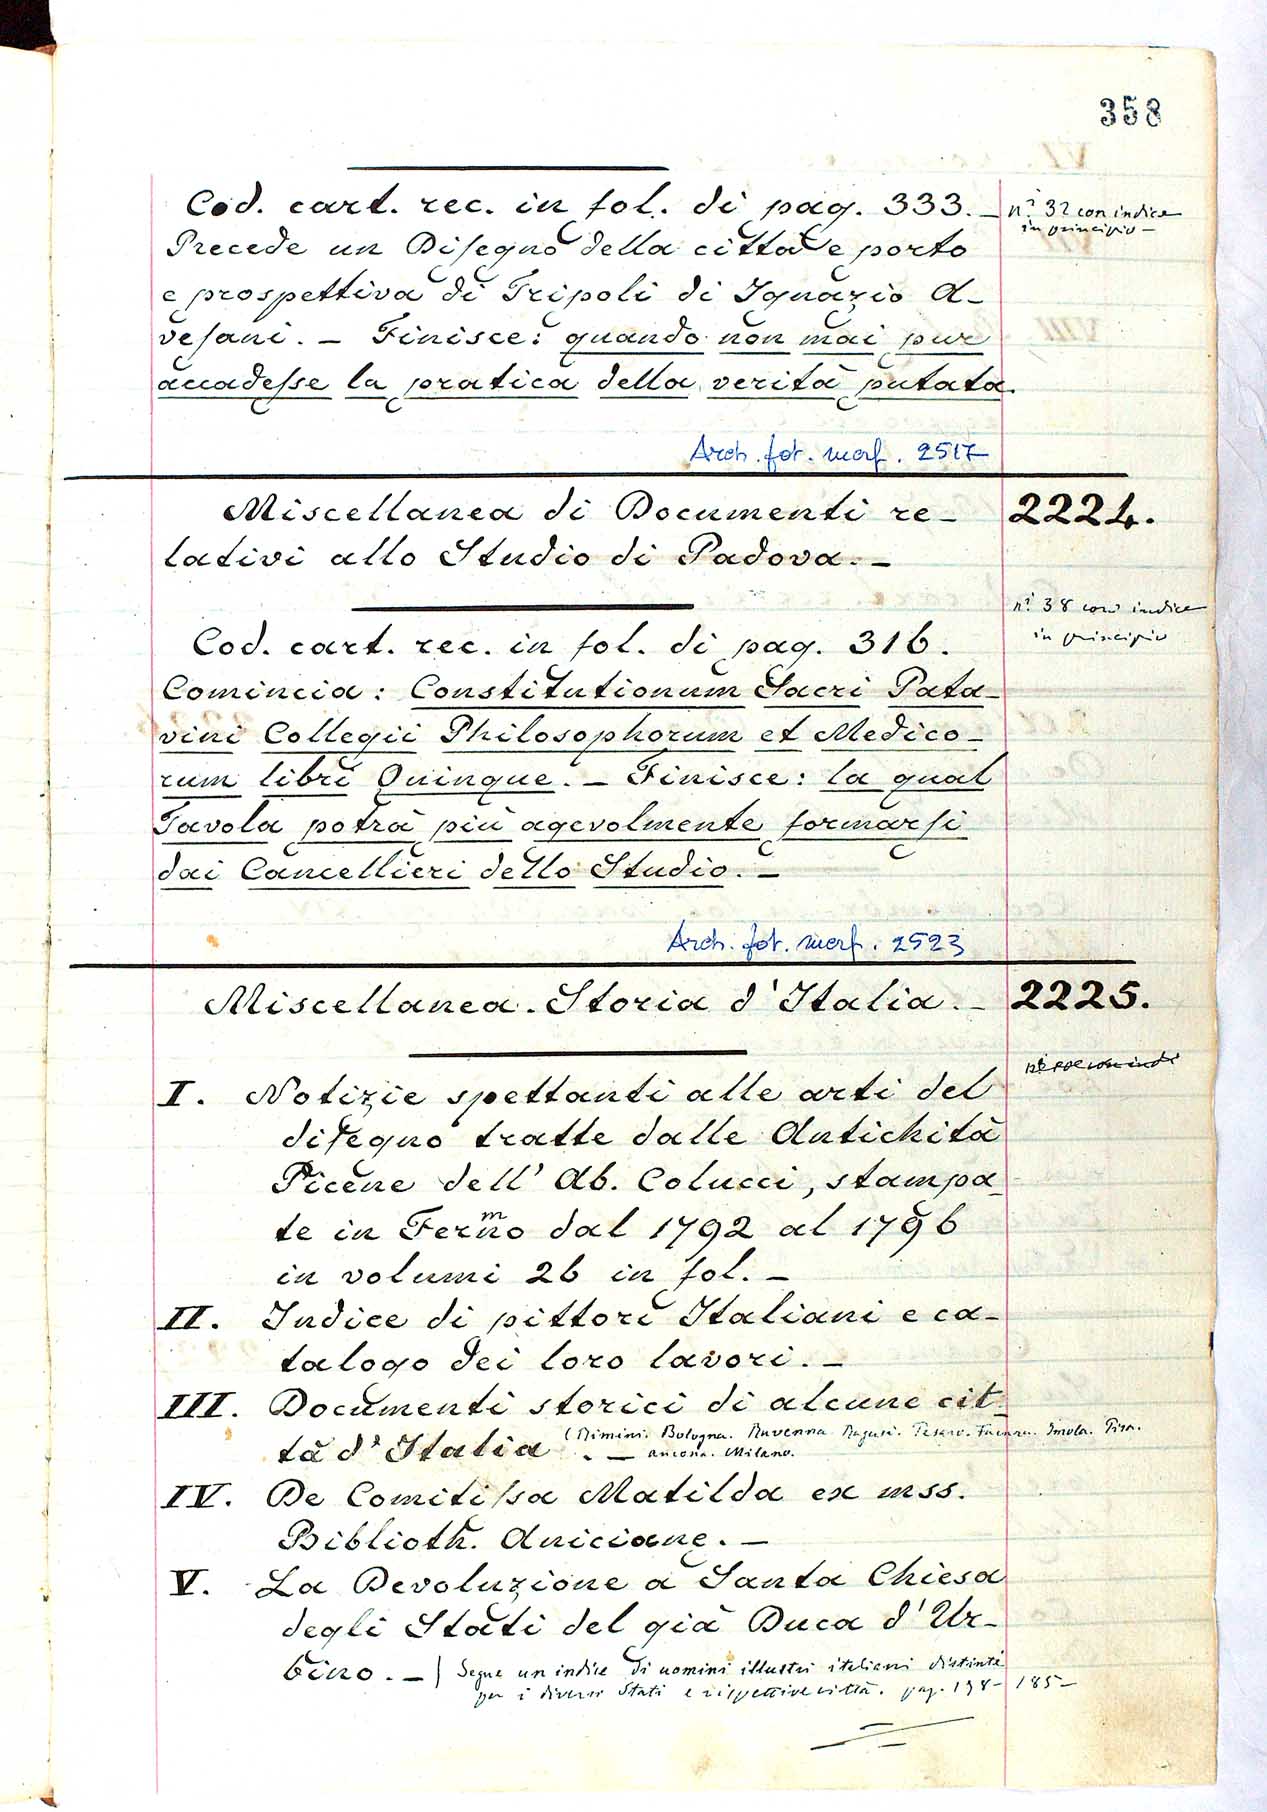 358
Cod. cart. rec. in fol. di pag. 333. –
nⁱ 32 con indice
in principio –
Precede un Disegno della città e porto
e prospettiva di Tripoli di Ignazio A-
vesani. – Finisce: quando non mai pur
accadesse la pratica della verità putata.
Arch. fot. morf. 2517
Miscellanea di Documenti re-
2224.
lativi allo Studio di Padova. –
nⁱ 38 con indice
in principio
Cod. cart. rec. in fol. di pag. 316.
Comincia: Constitutionum Sacri Pata-
vini Collegii Philosophorum et Medico-
rum libri Quinque. – Finisce: la qual
Tavola potrà più agevolmente formarsi
dai Cancellieri dello Studio. –
Arch. fot. morf. 2523
Miscellanea. Storia d'Italia. –
2225.
I. Notizie spettanti alle arti del
disegno tratte dalle Antichità
Picene dell' Ab. Colucci, stampa-
te in Fermo dal 1792 al 1796
in volumi 26 in fol. –
II. Indice di pittori Italiani e ca-
talogo dei loro lavori. –
III. Documenti storici di alcune cit-
tà d'Italia . – (Rimini. Bologna. Ravenna. Ragusi. Pesaro. Faenza. Imola. Pisa.
Ancona. Milano.
IV. De Comitissa Matilda ex mss.
Biblioth. Aniciane. –
V. La Devoluzione a Santa Chiesa
degli Stati del già Duca d'Ur-
bino. – ) Segue un indice di uomini illustri italiani distinti
per i diversi Stati e rispettive città. pag. 198- 185 –